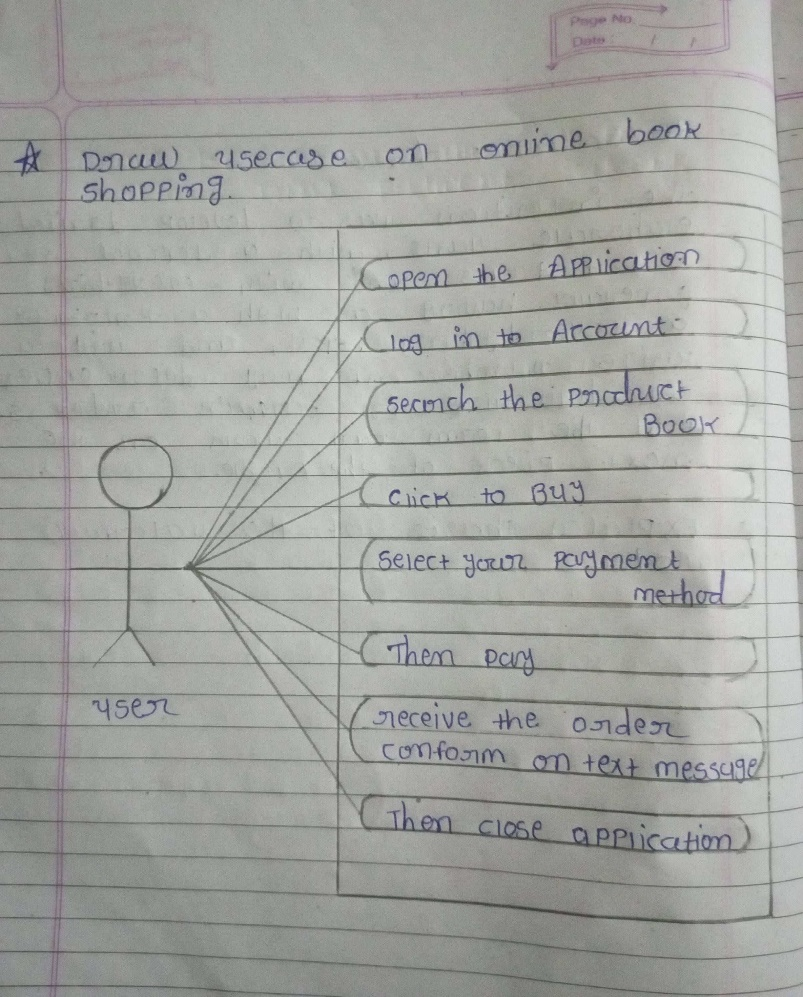 Page No.
Date: / /
☆ Draw usecase on online book
shopping.
open the Application
log in to Account.
search the product
Book
click to Buy
select your payment
method
Then pay
user
receive the order
conform on text message
Then close application